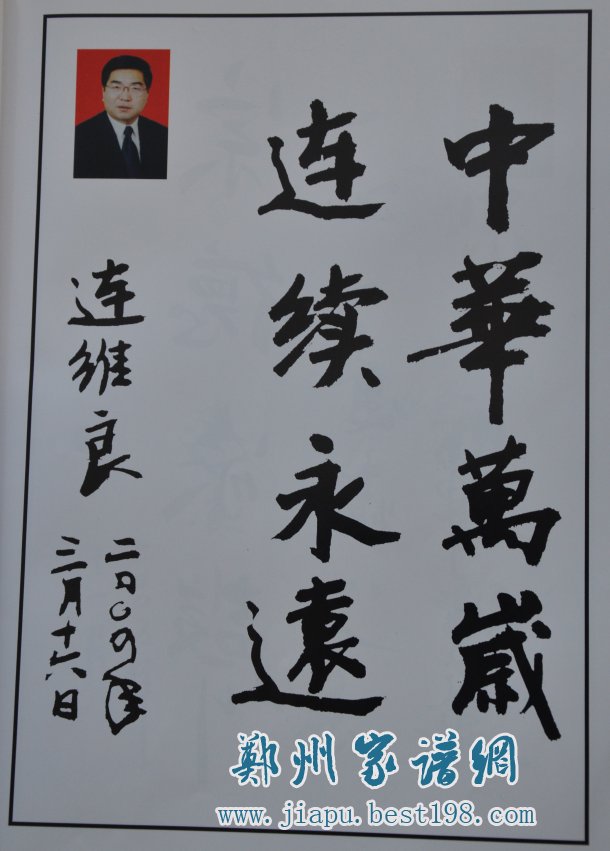 中華萬歲
连续永遠
连维良
三月十六日
鄭州家谱網
www.jiapu.best198.com